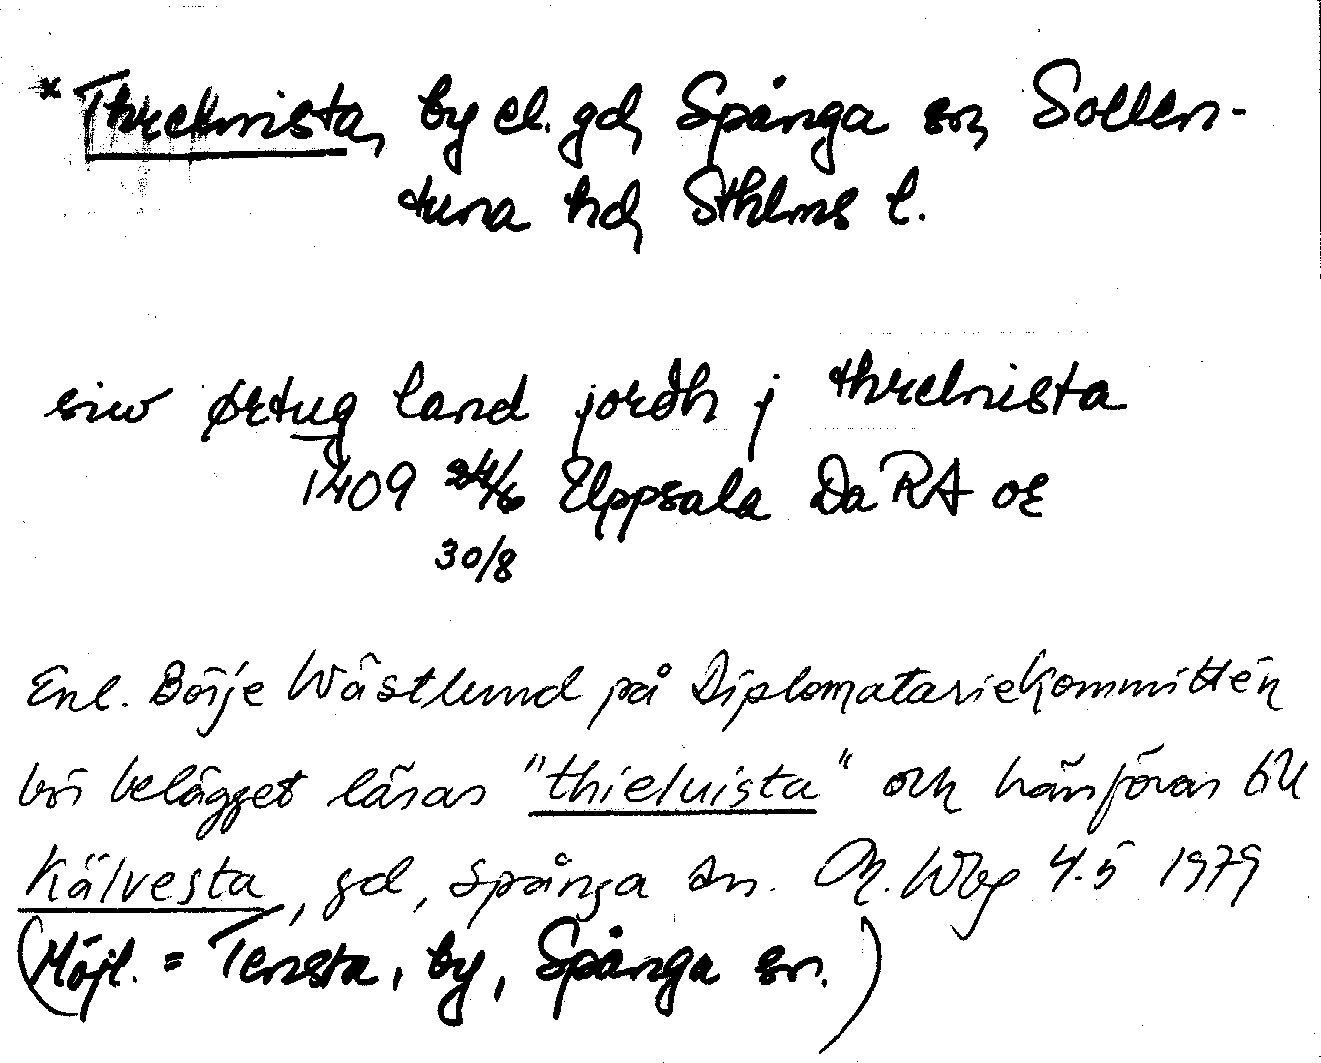 * Threlnista, by el. gd, Spånga sn, Sollen-
tuna hd, Sthlms l.
siw ørtug land jordh j threlnista
1409 24/6 Uppsala Da RA or
30/8
Enl. Börje Wästlund på Diplomatariekommittén
bör belägget läsas "thieluista" och hänföras till
Kälvesta, gd, Spånga sn. Wbg 4.5 1979
(Möjl. = Tensta, by, Spånga sn.)